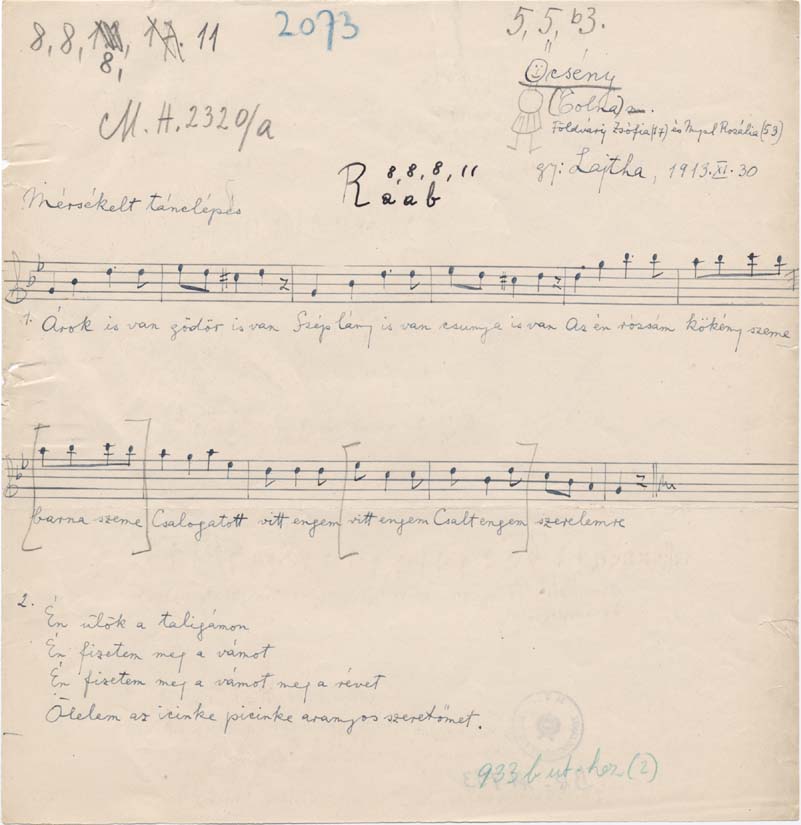 8, 8, 11, 17. 11
8,
2073
5, 5, b3.
Öcsény
(Tolna)
M.H. 2320/a
Földvári Zsófia (17) és Rozália (53)
gy: Lajtha, 1913. XI. 30
8, 8, 8, 11
Raab
Mérsékelt tánclépés
1. Árok is van gödör is van Szép lány is van csunya is van Az én rózsám kökény szeme
barna szeme Csalogatott vitt engem vitt engem Csalt engem szerelemre
2.
Én ülök a taligámon
Én fizetem meg a vámot
Én fizetem meg a vámot meg a révet
Ölelem az icinke picinke aranyos szeretőmet.
933 b ut-hoz (2)